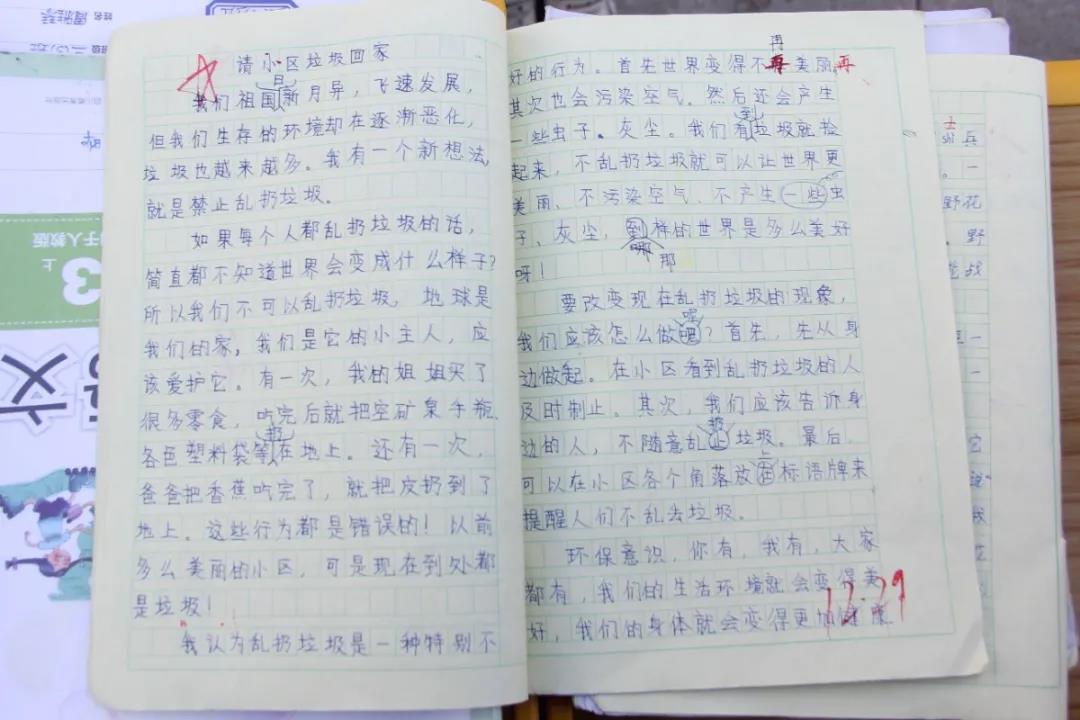 请小区垃圾回家
我们祖国日新月异，飞速发展，
但我们生存的环境却在逐渐恶化，
垃圾也越来越多。我有一个新想法，
就是禁止乱扔垃圾。
如果每个人都乱扔垃圾的话，
简直都不知道世界会变成什么样子？
所以我们不可以乱扔垃圾，地球是
我们的家，我们是它的小主人，应
该爱护它。有一次，我的姐姐买了
很多零食，吃完后就把空矿泉手瓶、
各色塑料袋等扔在地上。还有一次，
爸爸把香蕉吃完了，就把皮扔到了
地上。这些行为都是错误的！以前
多么美丽的小区，可是现在到处都
是垃圾！
我认为乱扔垃圾是一种特别不
好的行为。首先世界变得不再美丽，再
其次也会污染空气。然后还会产生
一些虫子、灰尘。我们看到垃圾就捡
起来，不乱扔垃圾就可以让世界更
美丽、不污染空气、不产生一些虫
子、灰尘，到那样的世界是多么美好
呀！
要改变现在乱扔垃圾的现象，
我们应该怎么做呢？首先，先从身
边做起。在小区看到乱扔垃圾的人
及时制止。其次，我们应该告诉身
边的人，不随意乱扔垃圾。最后，
可以在小区各个角落放上标语牌来
提醒人们不乱去垃圾。
环保意识，你有，我有，大家
都有，我们的生活环境就会变得美
好，我们的身体就会变得更加健康
12.29
语文
3
上
士
兵
野花
野
战
它
我
花